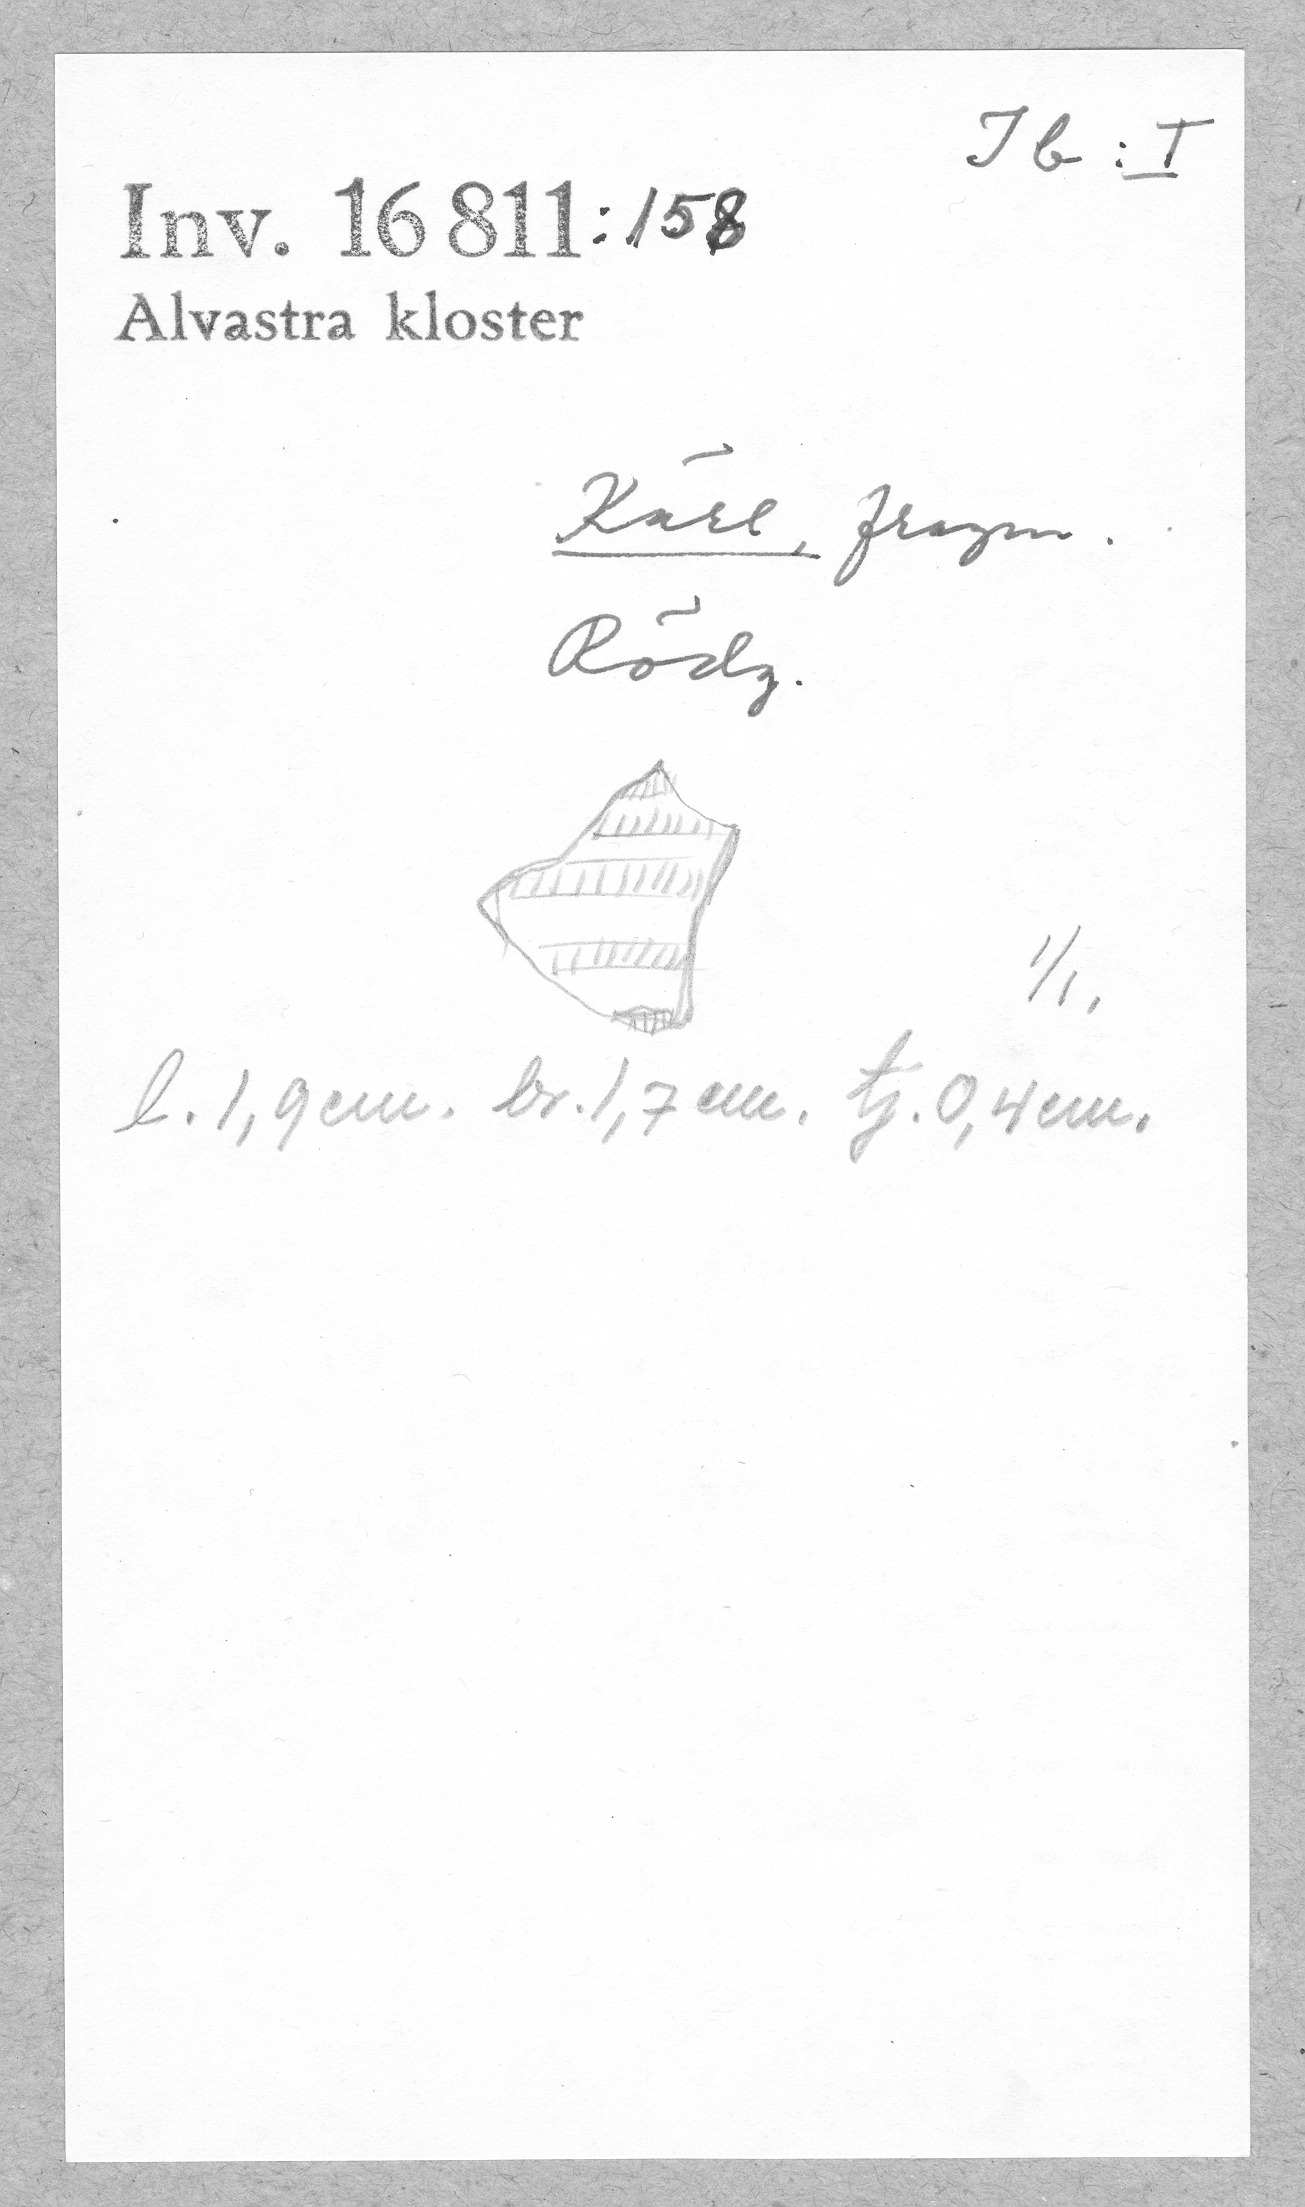 I b : I
Inv. 16 811:158
Alvastra kloster
Kärl, fragm.
Rödg.
1/1.
l. 1,9 cm. br. 1,7 cm. tj. 0,4 cm.